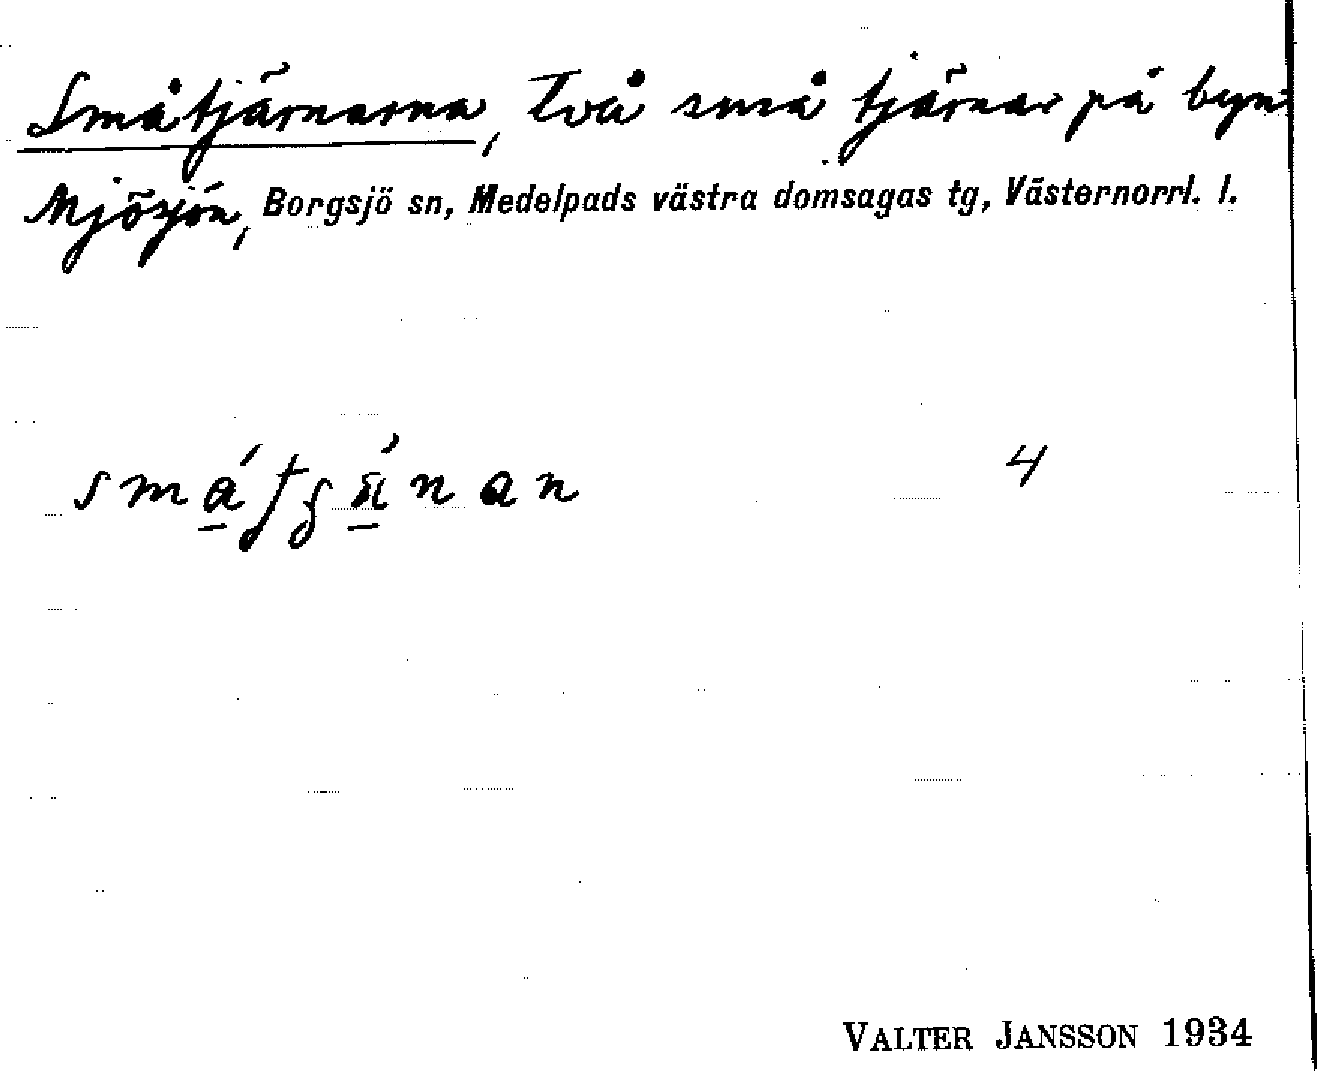 Småtjärnarna, Två små tjärnar på byn
Mjösjön, Borgsjö sn, Medelpads västra domsagas tg, Västernorrl. l.
4
VALTER JANSSON 1934